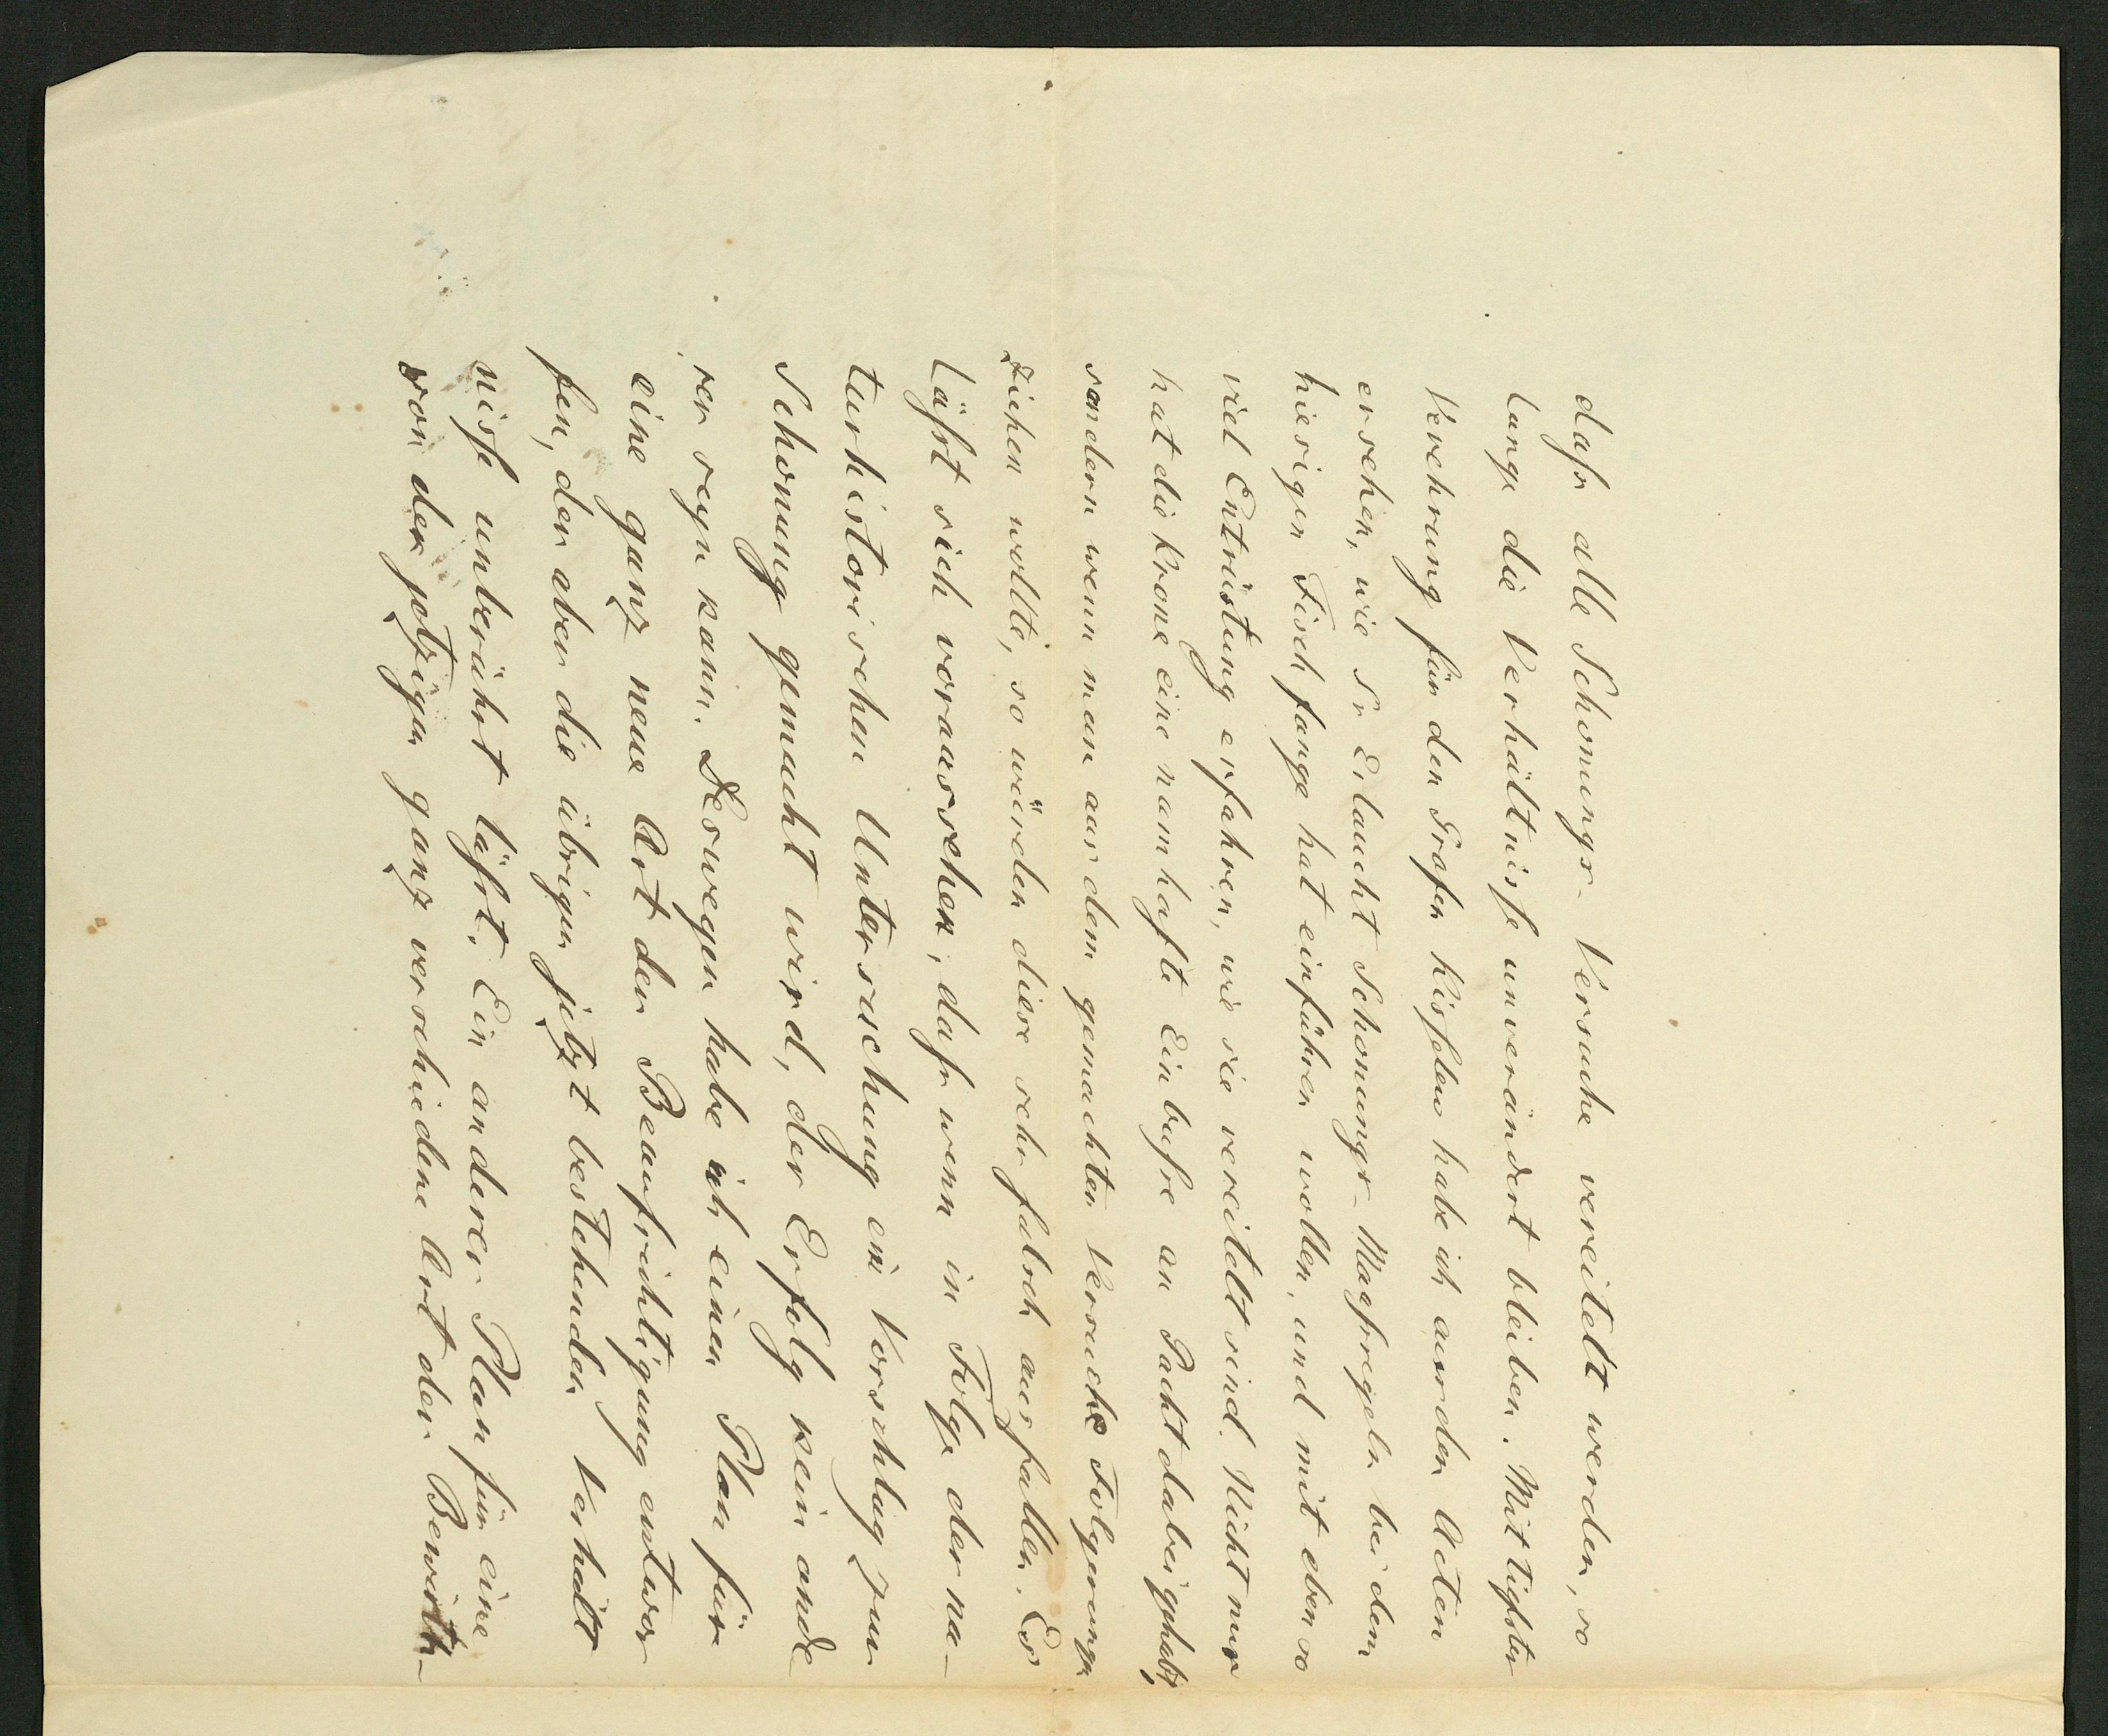 daſs alle Schonungs-Versuche vereitelt werden, so
lange die Verhältniſse unverändert bleiben. Mit tiefster
Verehrung für den Grafen Kiſselew habe ich aus den Acten
ersehen, wie Sr Erlaucht Schonungs-Maaſsregeln bei dem
hiesigen Fischfange hat einführen wollen, und mit eben so
viel Entrüstung erfahren, wie sie vereitelt sind. Nicht nur
hat die Krone eine namhafte Einbuſse an Pacht dabei gehabt,
sondern wenn man aus dem gemachten Versuche Folgerungen
ziehen wollte, so würden diese sehr falsch ausfallen. Es
läſst sich voraussehen, daſs wenn in Folge der na-
turhistorischen Untersuchung ein Vorschlag zur
Schonung gemacht wird, der Erfolg kein ande
rer seyn kann. Deswegen habe ich einen Plan für
eine ganz neue Art der Beaufsichtigung entwor
fen, der aber die übrigen jetzt bestehenden Verhält
niſse unberührt läſst. Ein anderer Plan für eine
von der jetzigen ganz verschiedene Art der Bewirth-